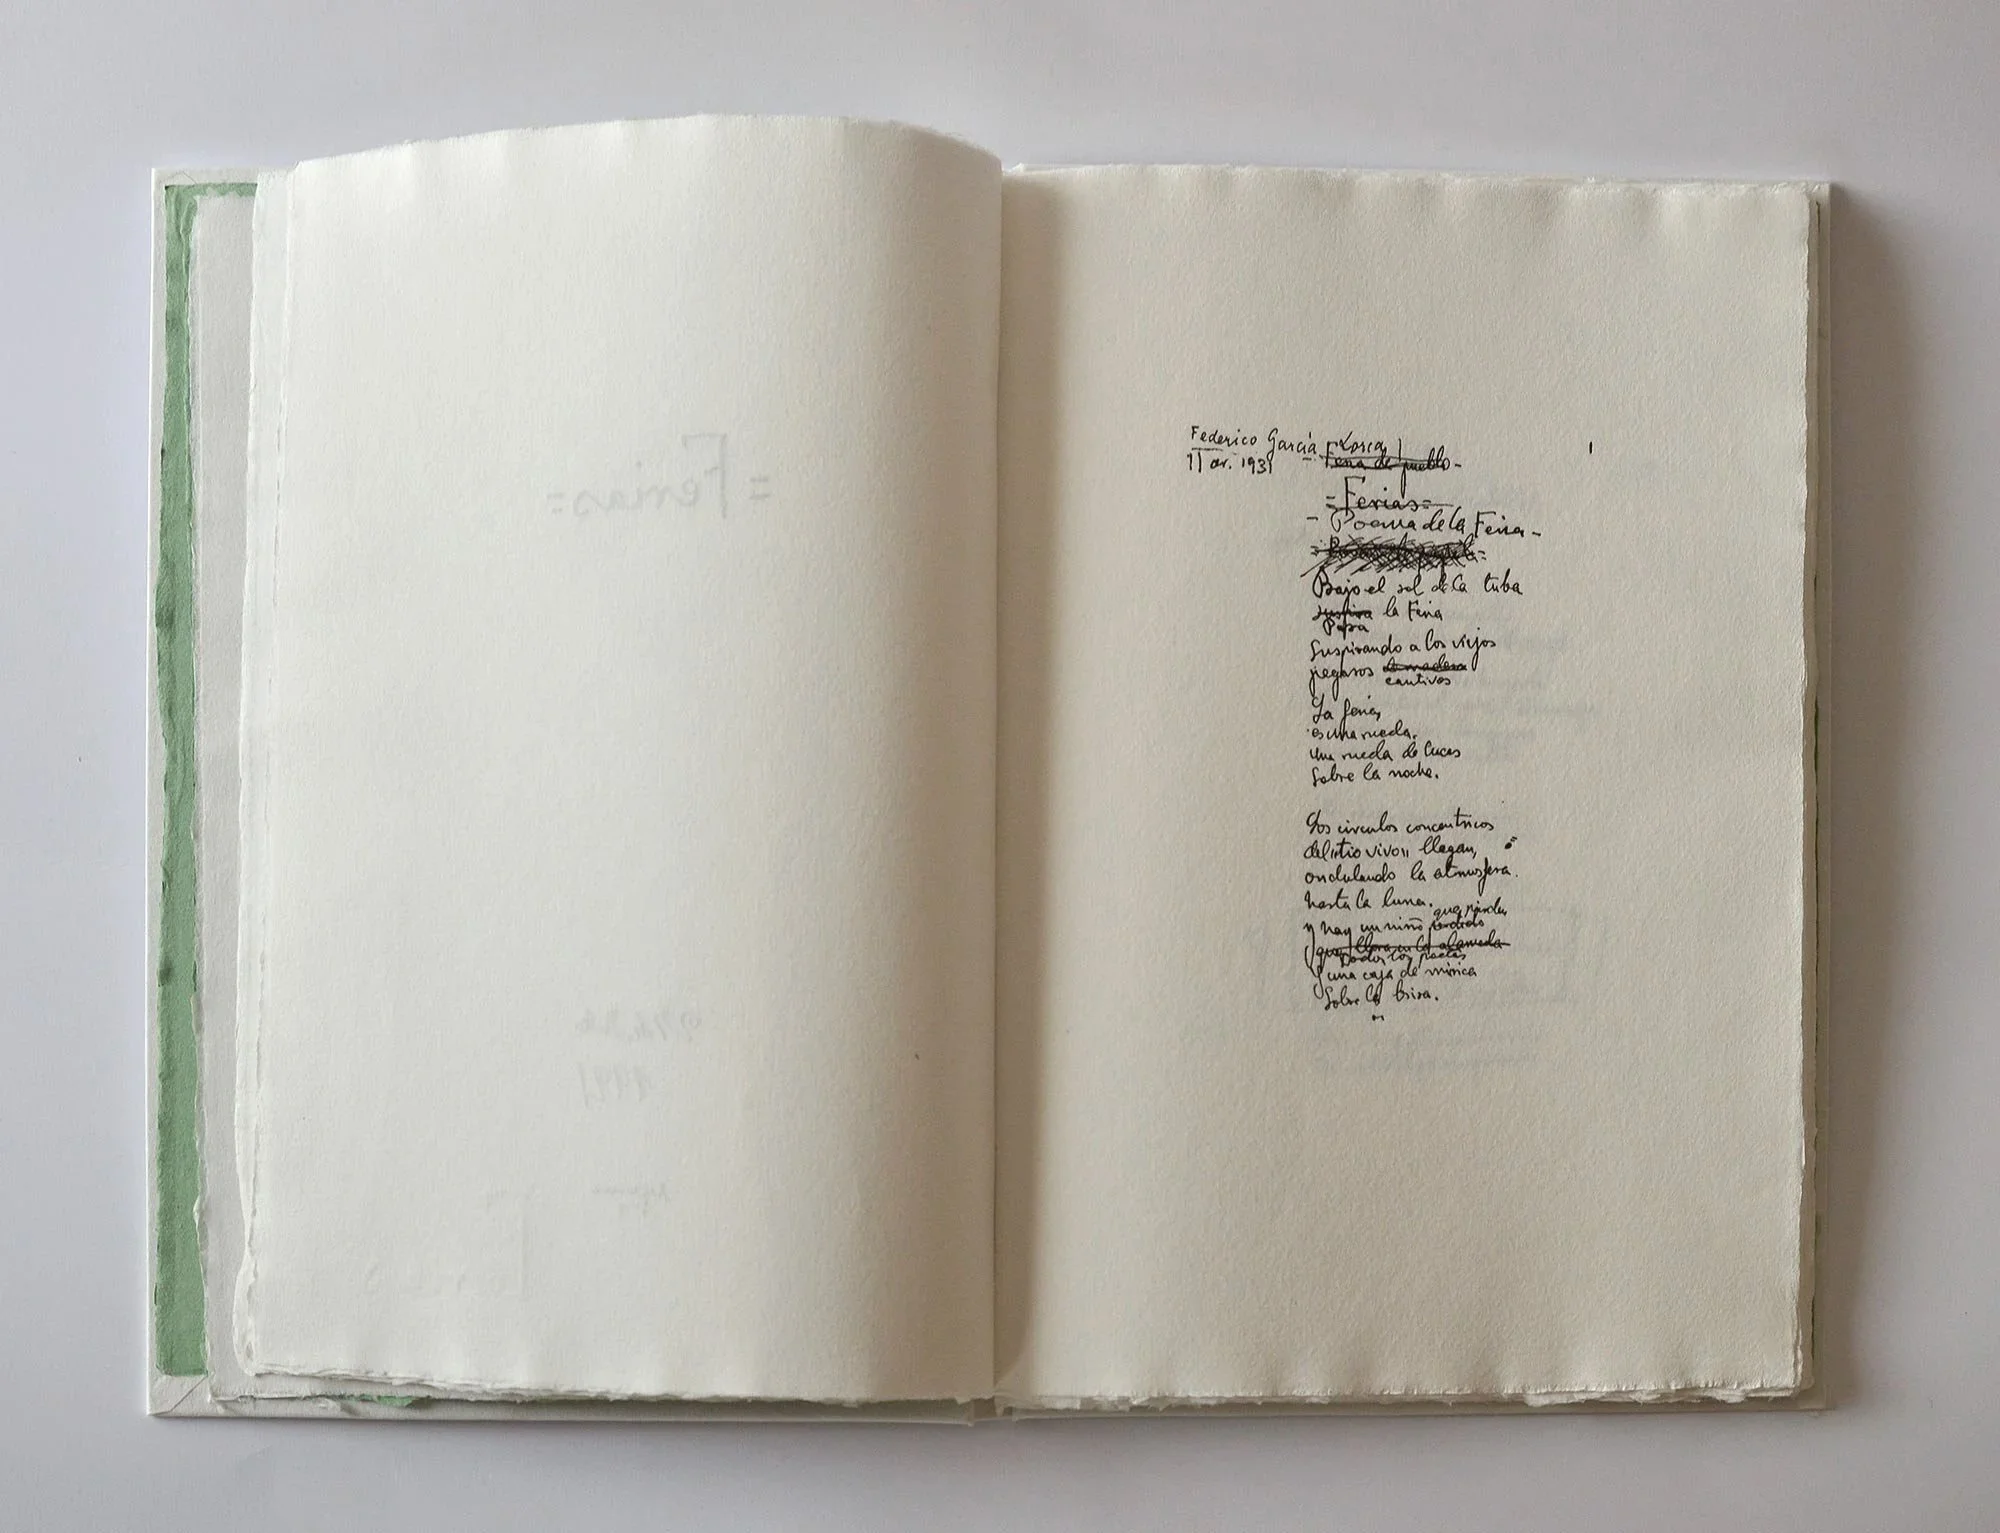 Federico García Lorca
1931
Feria de pueblo-
1
=Ferias=
- Poema de la Feria -
Bajo el sol de la tuba
suspira la Feria
Pasa
suspirando a los viejos
pegasos de madera
cautivos
La feria,
es una rueda.
una rueda de luces
sobre la noche.
Los circulos concentricos
del "tio vivo" llegan,
ondulando la atmosfera.
hasta la luna.
que pierden
y hay un niño perdido
que llora en la alameda
todos los poetas
y una caja de música
sobre la brisa.